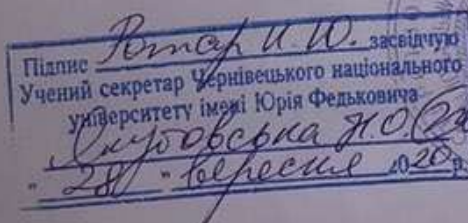 Підпис Ротар И. Ю. засвідчую
Учений секретар Чернівецького національного
університету імені Юрія Федьковича
Якубовська Н.О.
" 28 " вересня 2020 р.